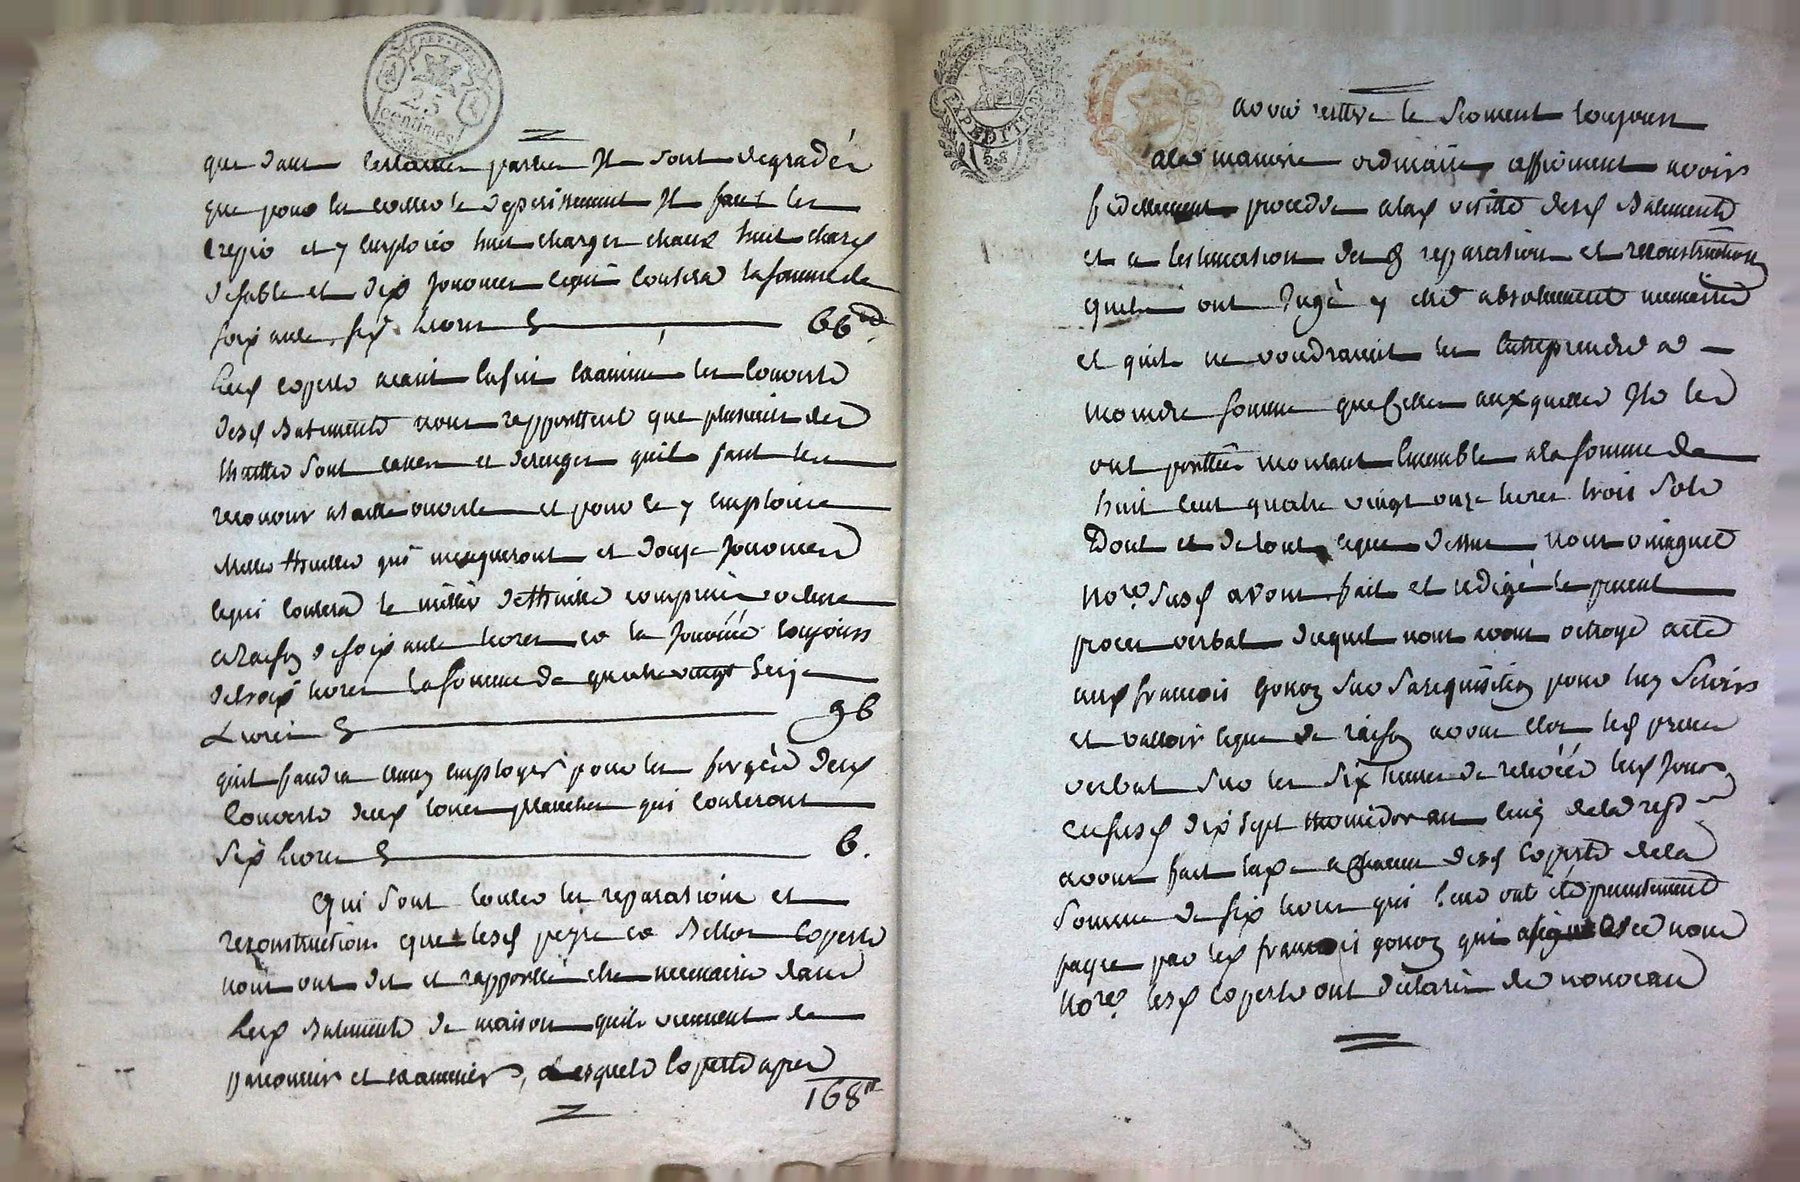 REP. FRA.
25
centimes
que dans certaines partie Il sont degradés
que pour les le deperissement Il faut les
crepir et y emploier huit charges chaux huit charg
de sable et dix Journees ce qui coutera la somme de
soixante six livres 66
Lesd experts aiant ensuite examiné les couverts
desd batiments nous rapportent que plusieurs des
thuilles sont cassés et derangés quil faut les
recouvrir et pour ce y emploier
Milles thuilles qui manqueront et douze Journees
ce qui coutera le millier de thuilles compris
a raison de soixante livres et la Journée toujours
de trois livres la somme de quatre vingt seize
Livres 96
quil faudra emploier pour les desd
couverts deux planches qui couteront
six livres 6.
Qui sont toutes les reparations et
reconstructions que lesd peyre et experts
nous ont dit et rapporté etre necessaire dans
lesd batiments de maison quils viennent de
parcourir et examiner, Lesquels experts apres
168
EXPEDITION
avoir reitteré le serment toujours
a la maniere ordinaire, affirment avoir
fidellement procedé a la visitte desd Batiments
et a lestimation des d reparation et reconstructions
quels ont Jugé y etre absolument necessaires
et quil ne voudraient les entreprendre a
moindre somme que celles auxquelles Ils les
ont portées montant ensemble a la somme de
huit cent quatre vingt onze livres trois sols
Dont et de tout ce que dessus nous
No.re susd avons fait et redigé le present
proces verbal duquel nous avons octroyé acte
aud francois sur sa requisition pour luy servir
et valloir ce que de raison avons clos led proces
verbal sur les six heures de relevée lesd Jour
susd dix sept thermidor an cinq de la rep
avons fait taxe a chacun desd experts de la
somme de six livres qui leur ont été presentement
payée par led francois qui a signé avec nous
No.re lesd experts ont declaré de